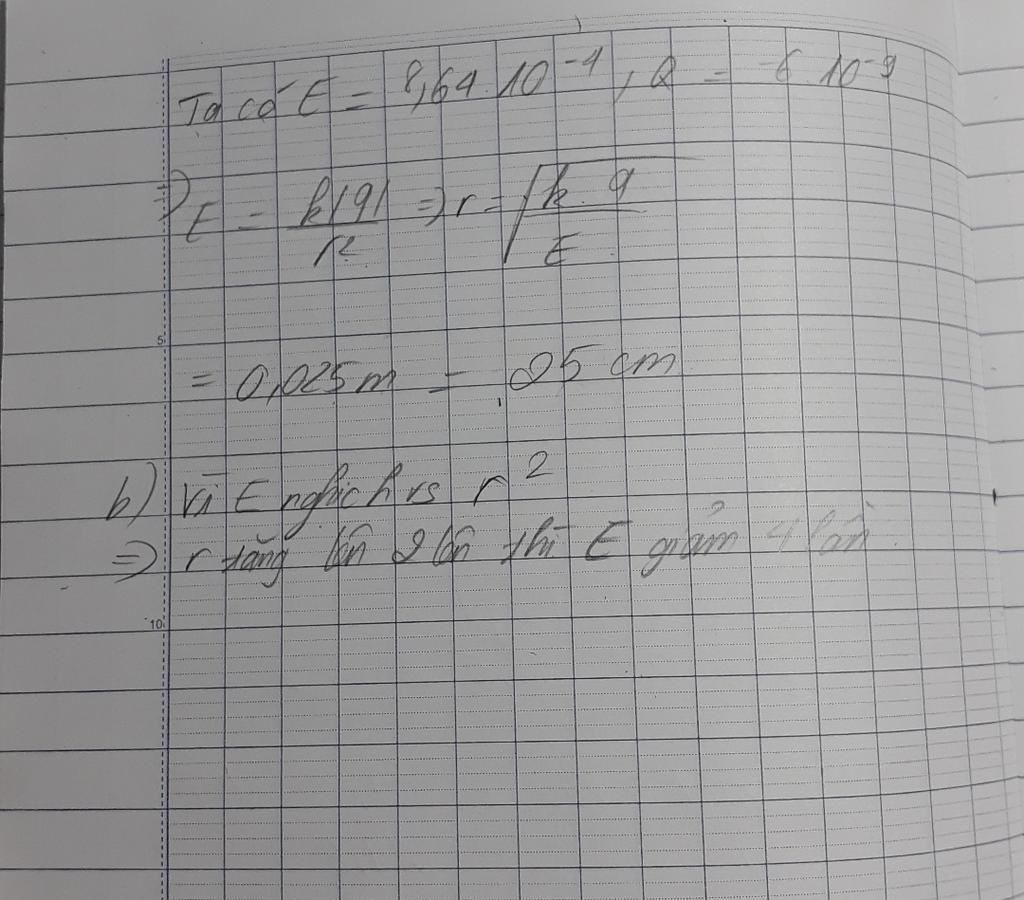 Ta có E = 8,64.10⁻⁴, Q = -6.10⁻⁹
=> E = k|q|/r² => r = √(k.q/E)
5
= 0,025m = 25 cm
b) Vì E nghịch vs r²
=> r tăng lên 2 lần thì E giảm 4 lần
10